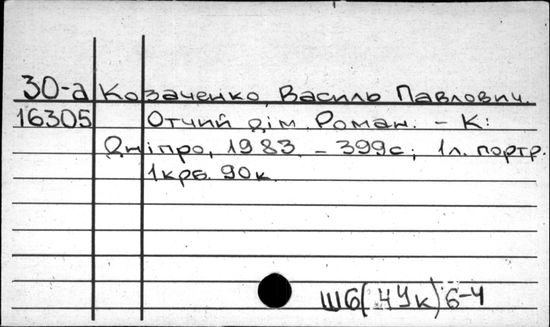 30-а Козаченко, Василь Павлович.
16305 Отчий дім. Роман. - К:
Дніпро, 1983. - 399с; 1л. портр.
1крб. 90к.
Ш6(4Ук)6-4